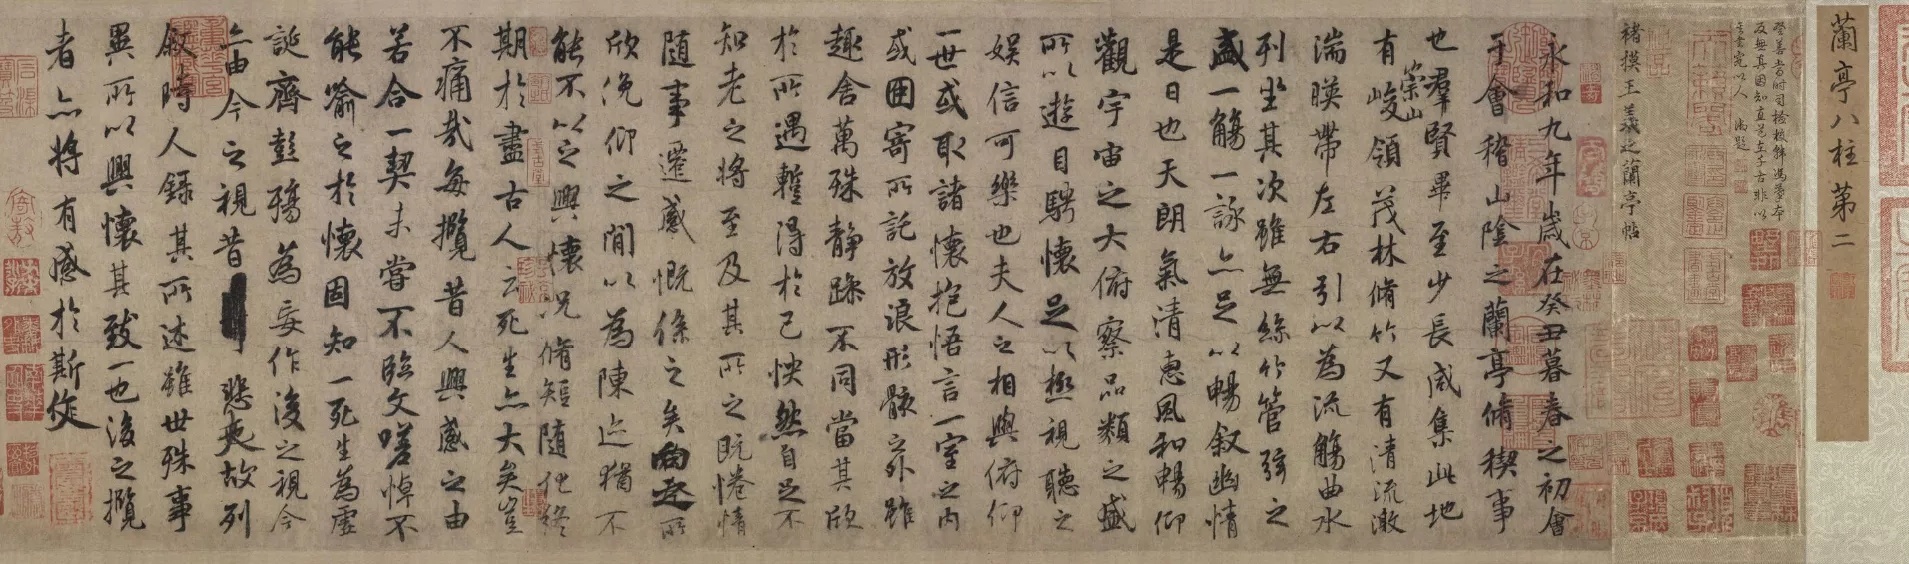 蘭亭八柱第二
褚摸王羲之蘭亭帖
永和九年歲在癸丑暮春之初會
于會稽山陰之蘭亭脩稧事
也羣賢畢至少長咸集此地
有峻領茂林脩竹又有清流激
崇山
湍暎帶左右引以為流觴曲水
列坐其次雖無絲竹管弦之
盛一觴一詠亦足以暢叙幽情
是日也天朗氣清惠風和暢仰
觀宇宙之大俯察品類之盛
所以遊目騁懷足以極視聽之
娛信可樂也夫人之相與俯仰
一世或取諸懷抱悟言一室之內
或因寄所託放浪形骸之外雖
趣舍萬殊静躁不同當其欣
於所遇蹔得於己怏然自足不
知老之將至及其所之既惓情
隨事遷感慨係之矣向之所
欣俛仰之閒以為陳迹猶不
能不以之興懷況脩短隨化終
期於盡古人云死生亦大矣豈
不痛哉每攬昔人興感之由
若合一契未嘗不臨文嗟悼不
能喻之於懷固知一死生為虛
誕齊彭殤為妄作後之視今
亦由今之視昔 悲夫故列
叙時人錄其所述雖世殊事
異所以興懷其致一也後之攬
者亦將有感於斯文